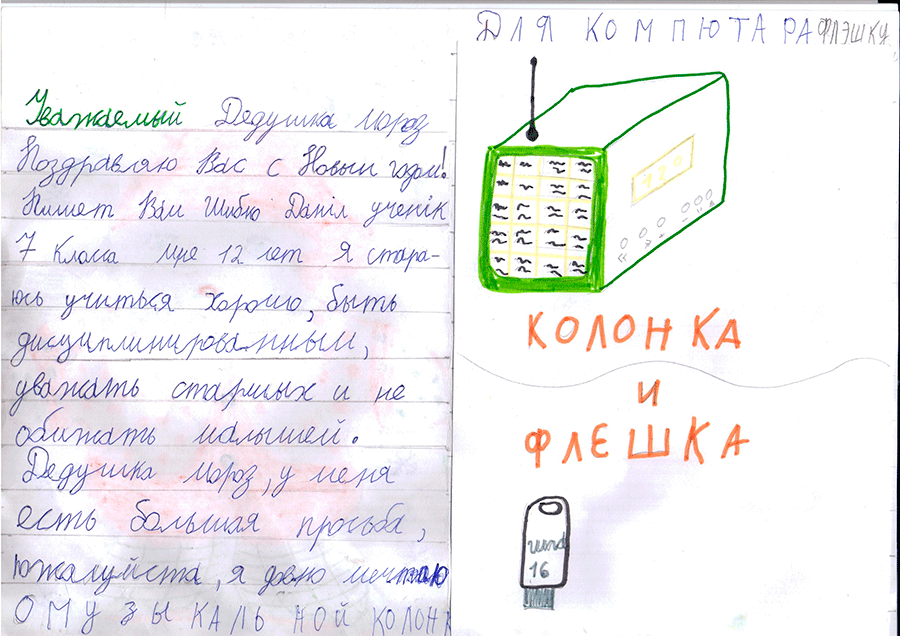 Уважаемый Дедушка мороз
Поздравляю Вас с Новым годом!
Пишет Вам Данііл ученік
7 Класса мне 12 лет Я стара-
юсь учиться хорошо, быть
дисциплинированным,
уважать старших и не
обижать малышей.
Дедушка мороз, у меня
есть большая просьба,
пожалуйста, я давно мечтаю
О МУЗЫКАЛЬНОЙ КОЛОНК
ДЛЯ КОМПЮТАРА ФЛЭШКУ
КОЛОНКА
И
ФЛЕШКА
16